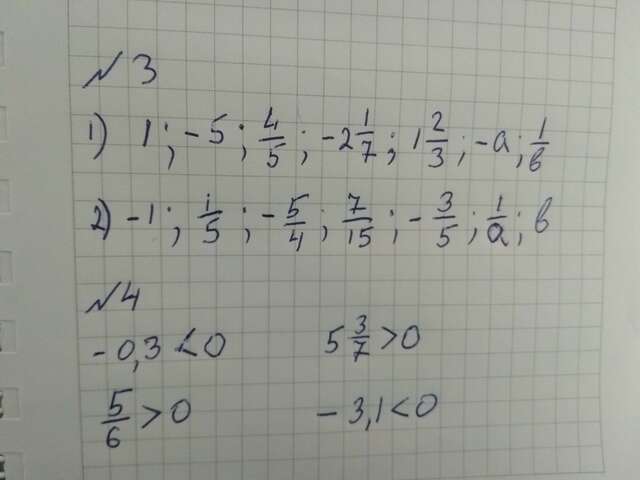 №3
1) 1; -5; 4/5; -2 1/7; 1 2/3; -a; 1/в
2) -1; 1/5; -5/4; 7/15; -3/5; 1/a; в
№4
-0,3 < 0 5 3/7 > 0
5/6 > 0 -3,1 < 0